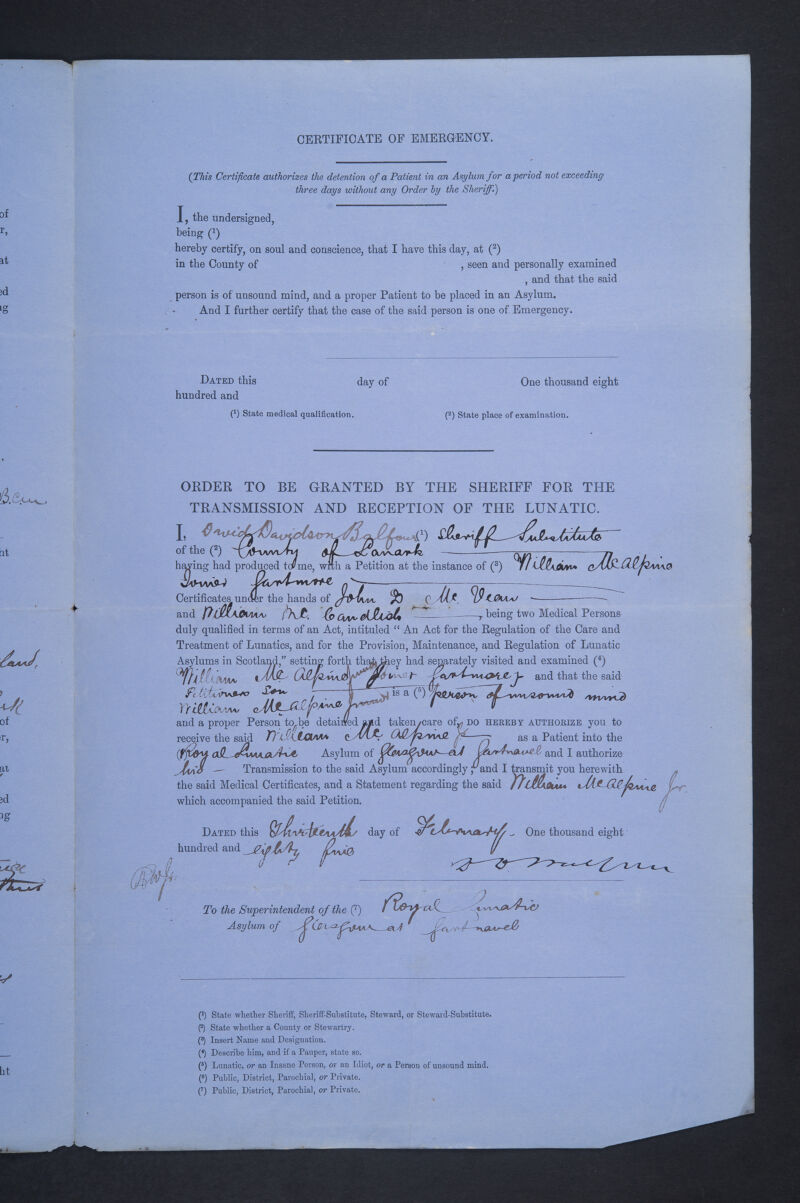 CERTIFICATE OF EMERGENCY.
(This Certificate authorizes the detention of a Patient in an Asylum for a period not exceeding
three days without any Order by the Sheriff.)
I, the undersigned,
being (¹)
hereby certify, on soul and conscience, that I have this day, at (²)
in the County of , seen and personally examined
, and that the said
person is of unsound mind, and a proper Patient to be placed in an Asylum.
And I further certify that the case of the said person is one of Emergency.
DATED this day of One thousand eight
hundred and
(¹) State medical qualification. (²) State place of examination.
ORDER TO BE GRANTED BY THE SHERIFF FOR THE
TRANSMISSION AND RECEPTION OF THE LUNATIC.
I, David Davidson Balfour (¹) Sheriff Substitute
of the (²) County of Lanark
having had produced to me, with a Petition at the instance of (³) William McAlpine
Joiner Gartmore
Certificates under the hands of John D McVean
and William McCandlish, being two Medical Persons
duly qualified in terms of an Act, intituled “ An Act for the Regulation of the Care and
Treatment of Lunatics, and for the Provision, Maintenance, and Regulation of Lunatic
Asylums in Scotland,” setting forth that they had separately visited and examined (⁴)
William McAlpine Junior Joiner Gartmore and that the said
Petitioners Son
William McAlpine Junior is a (⁵) person of unsound mind
and a proper Person to be detained and taken care of, DO HEREBY AUTHORIZE you to
receive the said William McAlpine Jr as a Patient into the
(⁶) Royal Lunatic Asylum of Glasgow at Gartnavel and I authorize
his Transmission to the said Asylum accordingly; and I transmit you herewith
the said Medical Certificates, and a Statement regarding the said William McAlpine Jr.
which accompanied the said Petition.
DATED this Thirteenth day of February One thousand eight
hundred and eighty five
To the Superintendent of the (⁷) Royal Lunatic
Asylum of Glasgow at Gartnavel
(¹) State whether Sheriff, Sheriff-Substitute, Steward, or Steward-Substitute.
(²) State whether a County or Stewartry.
(³) Insert Name and Designation.
(⁴) Describe him, and if a Pauper, state so.
(⁵) Lunatic, or an Insane Person, or an Idiot, or a Person of unsound mind.
(⁶) Public, District, Parochial, or Private.
(⁷) Public, District, Parochial, or Private.